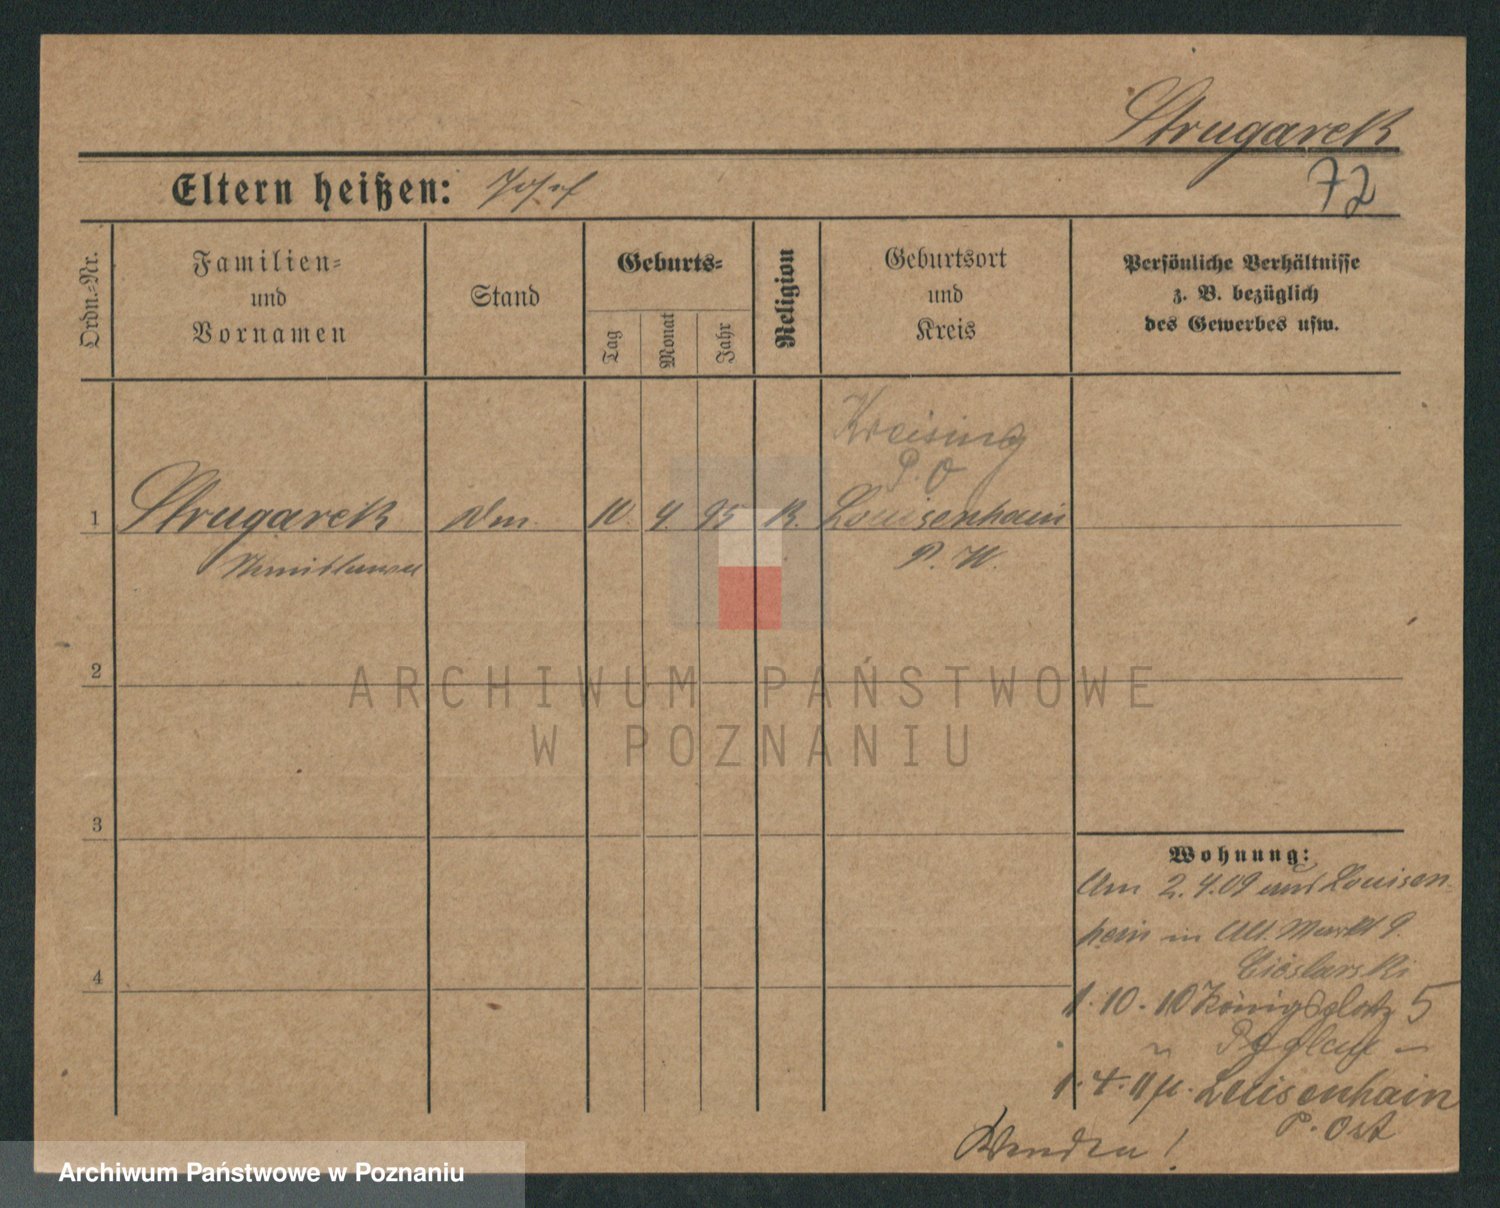 Strugarek
72
Eltern heißen: Josef
Ordn.-Nr.
Familien-
und
Vornamen
Stand
Geburts-
Tag
Monat
Jahr
Religion
Geburtsort
und
Kreis
Persönliche Verhältnisse
z. B. bezüglich
des Gewerbes usw.
Kreising
P. O
1 Strugarek 10. 4. 95 K. Louisenhain
P. W.
2
3
4
Wohnung:
Am 2.4.09 Louisen-
hain in Alt. Markt 9.
Cieslarski
1.10.10 Königsplatz 5
1.4.11 Luisenhain
P. Ost
Wenden!
ARCHIWUM PAŃSTWOWE
W POZNANIU
Archiwum Państwowe w Poznaniu